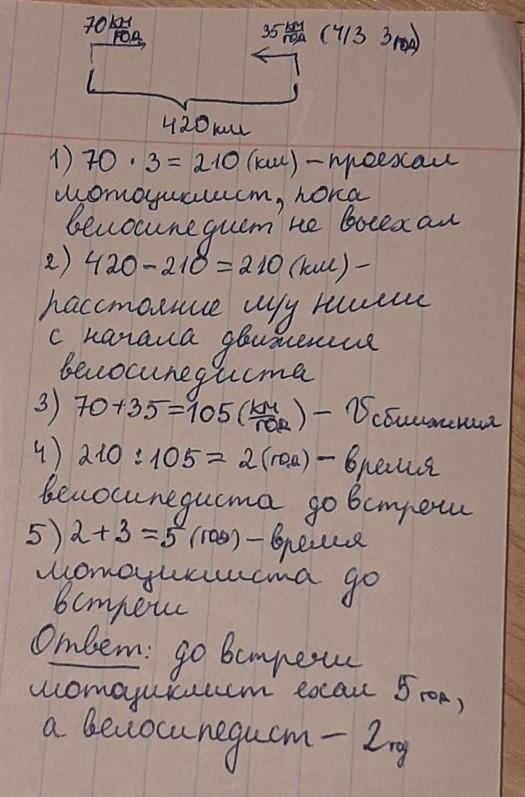 70 км/год 35 км/год (ч/з 3 год)
420 км
1) 70 · 3 = 210 (км) – проехал
мотоциклист, пока
велосипедист не выехал
2) 420 – 210 = 210 (км) –
расстояние м/у ними
с начала движения
велосипедиста
3) 70 + 35 = 105 (км/год) – Vсближения
4) 210 : 105 = 2 (год) – время
велосипедиста до встречи
5) 2 + 3 = 5 (год) – время
мотоциклиста до
встречи
Ответ: до встречи
мотоциклист ехал 5 год,
а велосипедист – 2 год